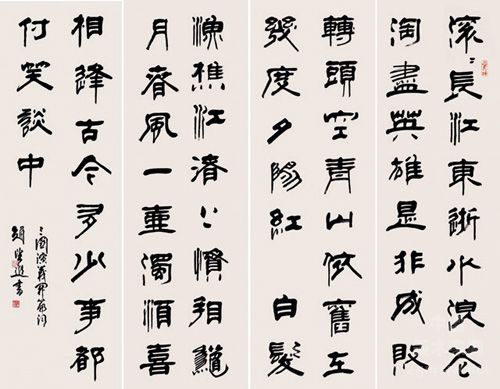 滚〻長江東逝水浪花
淘盡英雄是非成敗
轉頭空青山依舊在
幾度夕陽紅 白髮
漁樵江渚上慣看龝
月春風一壺濁酒喜
相逢古今多少事都
付笑談中
三國演義開篇詞
書